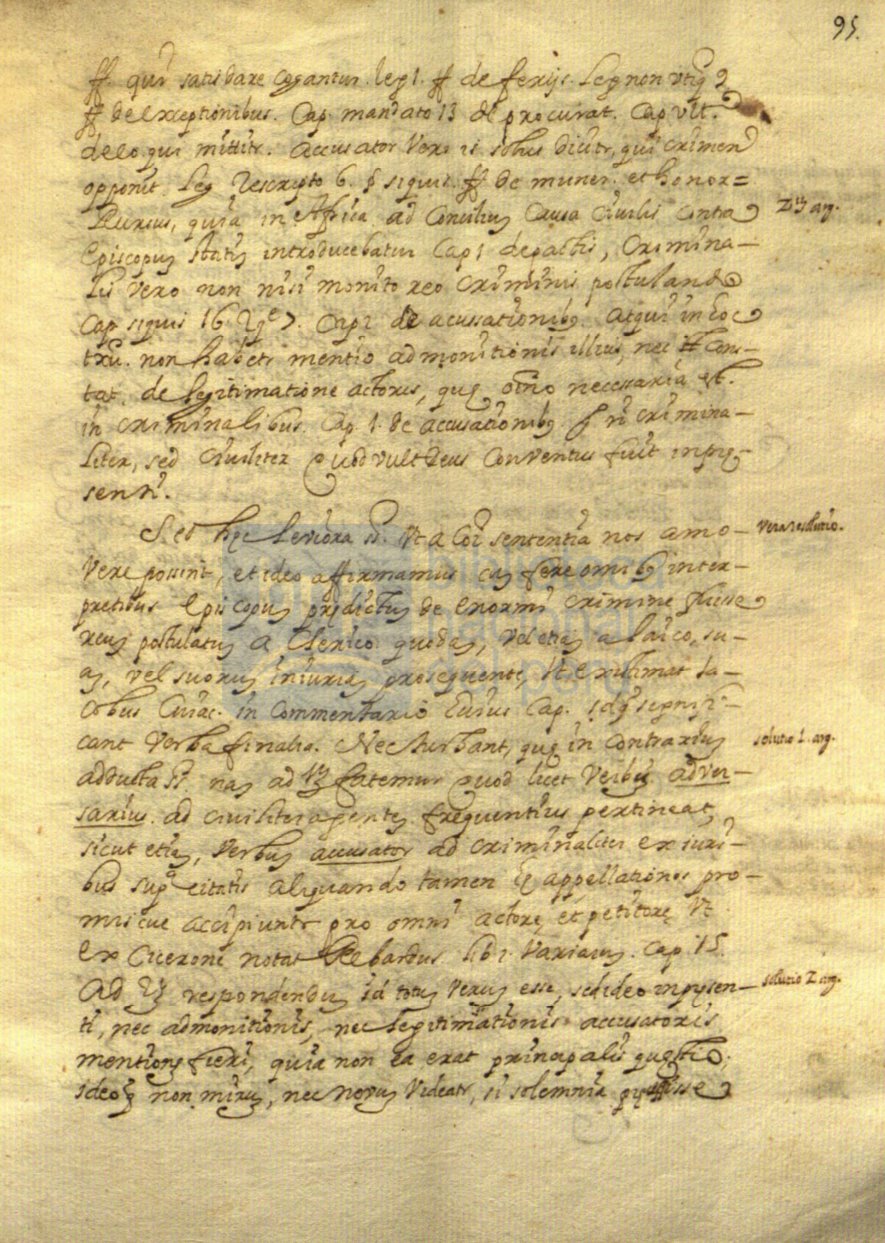 95.
ff. qui satis dare cogantur. leg 1. ff de ferijs. Leg non utiq 9
ff de exceptionibus. Cap. mandato 13 de procurat. Cap. ult.
de eo qui mittitr. accusator vero is solus dicitr, qui crimen
opponit. Leg Rescripto 6. § siquis. ff de muner. et honor=
Rursus, quia in Africa ad Conciliu Causa Civilis Contra
Episcopu statim introducebatur Cap 1 de pactis, Crimina-
lis vero non nisi monito reo criminis postulando
Cap siquis 16 2. q.e 7. Cap 2 de acussationibq. atqui in hoc
txtu. non habetr mentio admonitionis illius, nec Cons-
tat de legitimatione actoris, quę oīno necessaria est.
in criminalibus. Cap 1. de accusationibq. nō crimina-
liter, sed Civiliter Quod vult Deus Conventus fuit in pręs-
senti.
2ū arg.
Sed hęc leviora st. ut a Coi sententia nos amo-
vere possint, et ideo affirmamus cu fere omibq inter-
pretibus Episcopu prędictu de enormi crimine fuisse
reu postulatu a Clerico quoda, vel etia a laico, su-
a, vel suoru iniuria prosequente, ut existimat Ja-
cobus Cuiac. in Commentario huius Cap. id q signifi-
cant verba finalia. Nec turbant, quę in Contrariu
adducta st. na ad 1ū fatemur quod licet verbu adver-
sarius. ad civiliter agente frequentius pertineat,
sicut etia, verbu accusator ad criminaliter ex iuri-
bus supa citatis aliquando tamen hę appellationes pro-
miscue accipiuntr pro omni actore, et petitore, ut
ex Cicerone notat Rebardus lib 1. Variaru. Cap. 15.
Ad 2ū respondendu id totu veru esse, sed ideo in pręsen-
ti, nec admonitionis, nec legitimationis accusatoris
mentione fieri, quia non ea erat principalis quęstio,
ideoq non miru, nec novu videatr, si solemnia pręmisisse
vera resolutio.
solutio 1. arg.
solutio 2 arg.